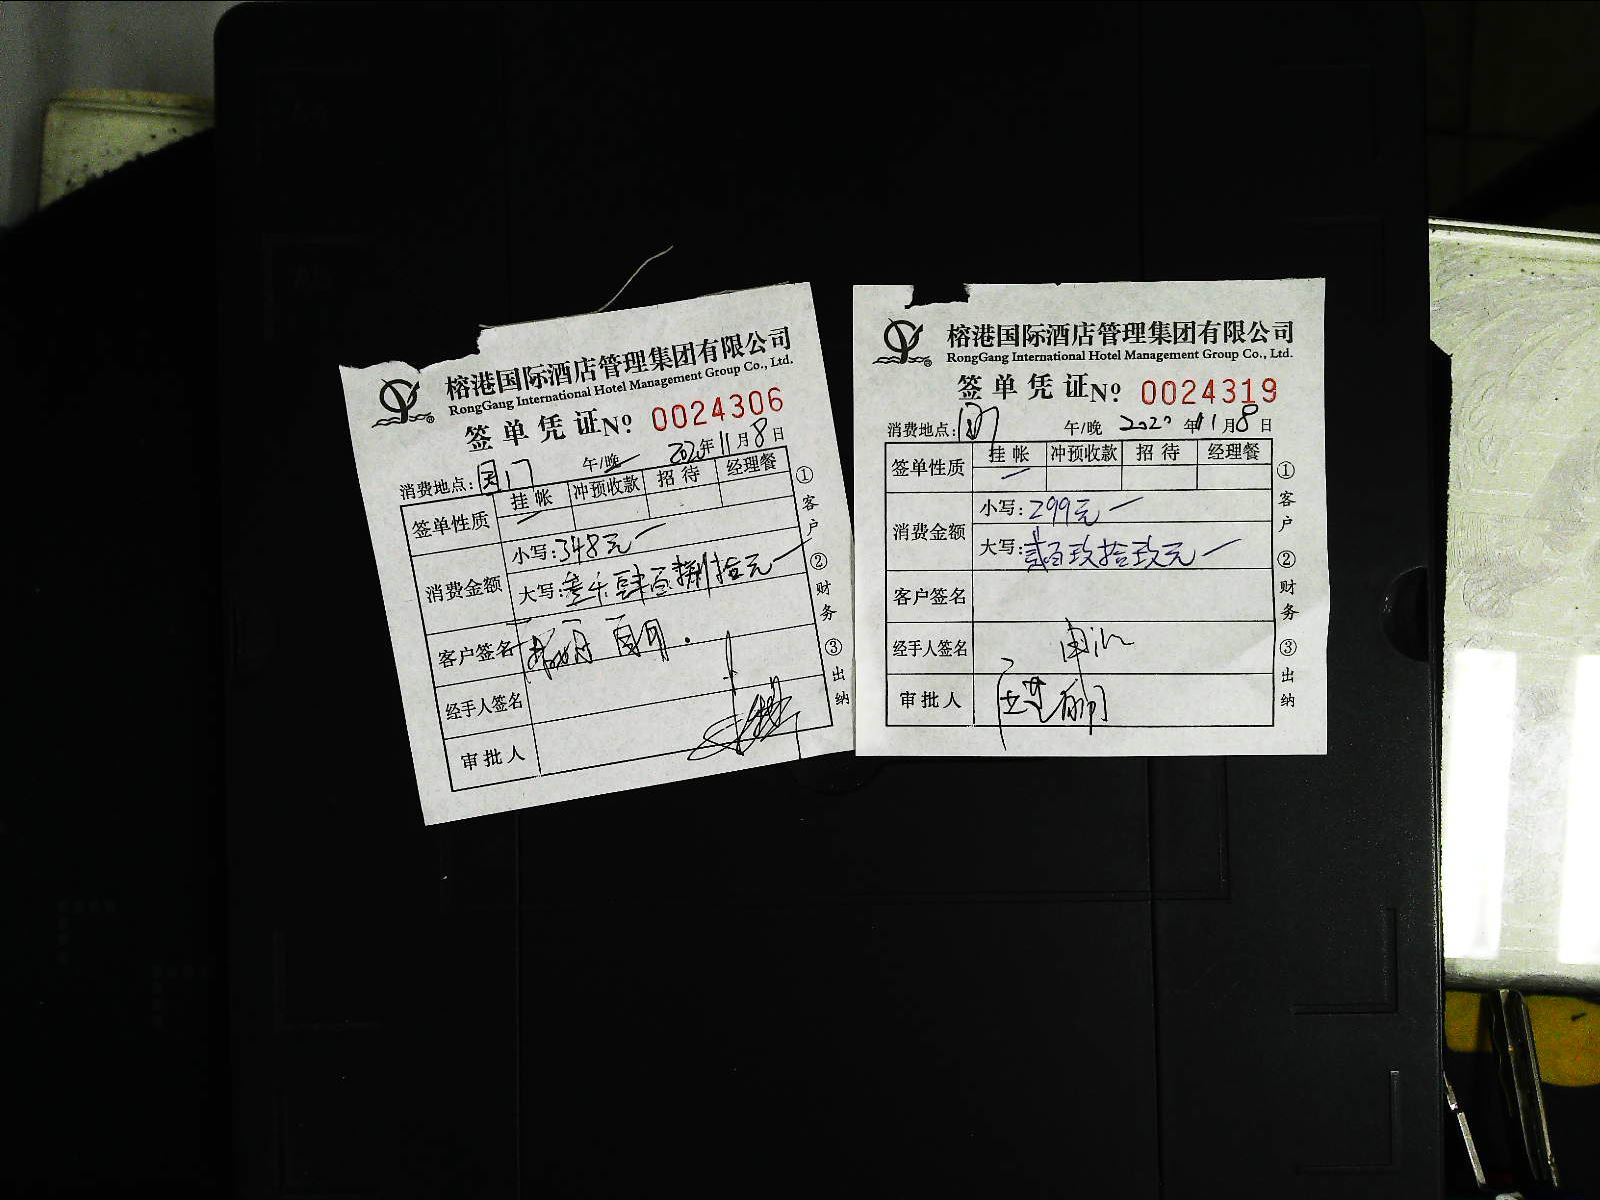 榕港国际酒店管理集团有限公司
RongGang International Hotel Management Group Co., Ltd.
签单凭证 Nº 0024306
消费地点: 午/晚 2020年11月8日
签单性质 挂帐 冲预收款 招待 经理餐
消费金额 小写: 348元
大写:
客户签名
经手人签名
审批人
①客户 ②财务 ③出纳
榕港国际酒店管理集团有限公司
RongGang International Hotel Management Group Co., Ltd.
签单凭证 Nº 0024319
消费地点: 午/晚 2020年11月8日
签单性质 挂帐 冲预收款 招待 经理餐
消费金额 小写: 299元
大写: 贰百玖拾玖元
客户签名
经手人签名
审批人
①客户 ②财务 ③出纳